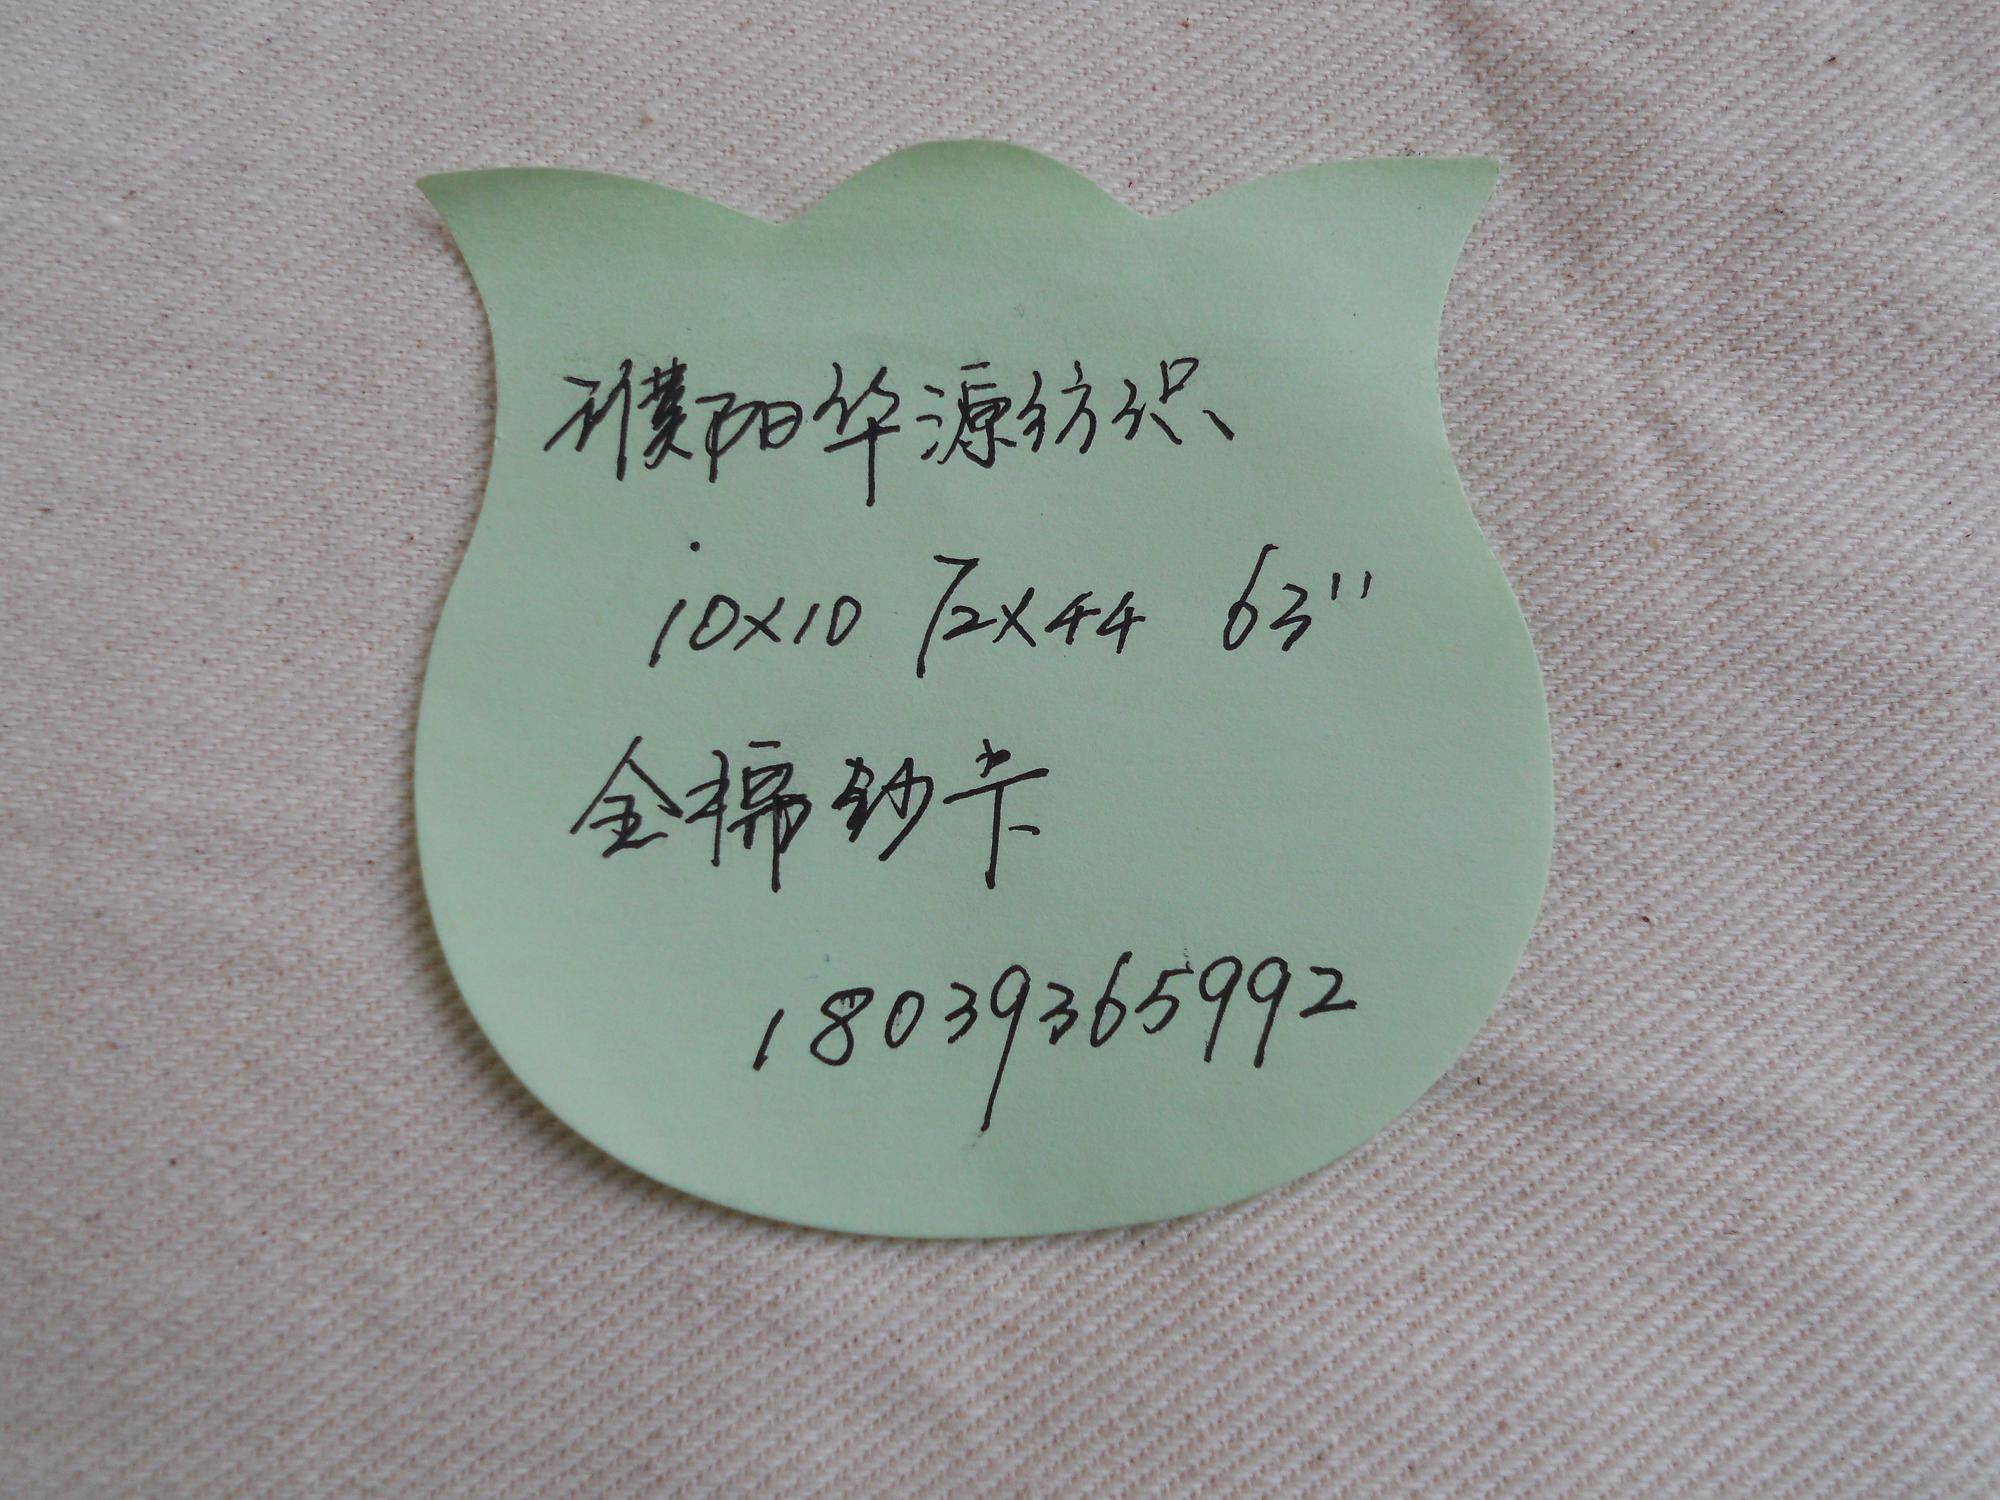 濮阳华源纺织
10x10 72x44 63"
全棉纱卡
18039365992